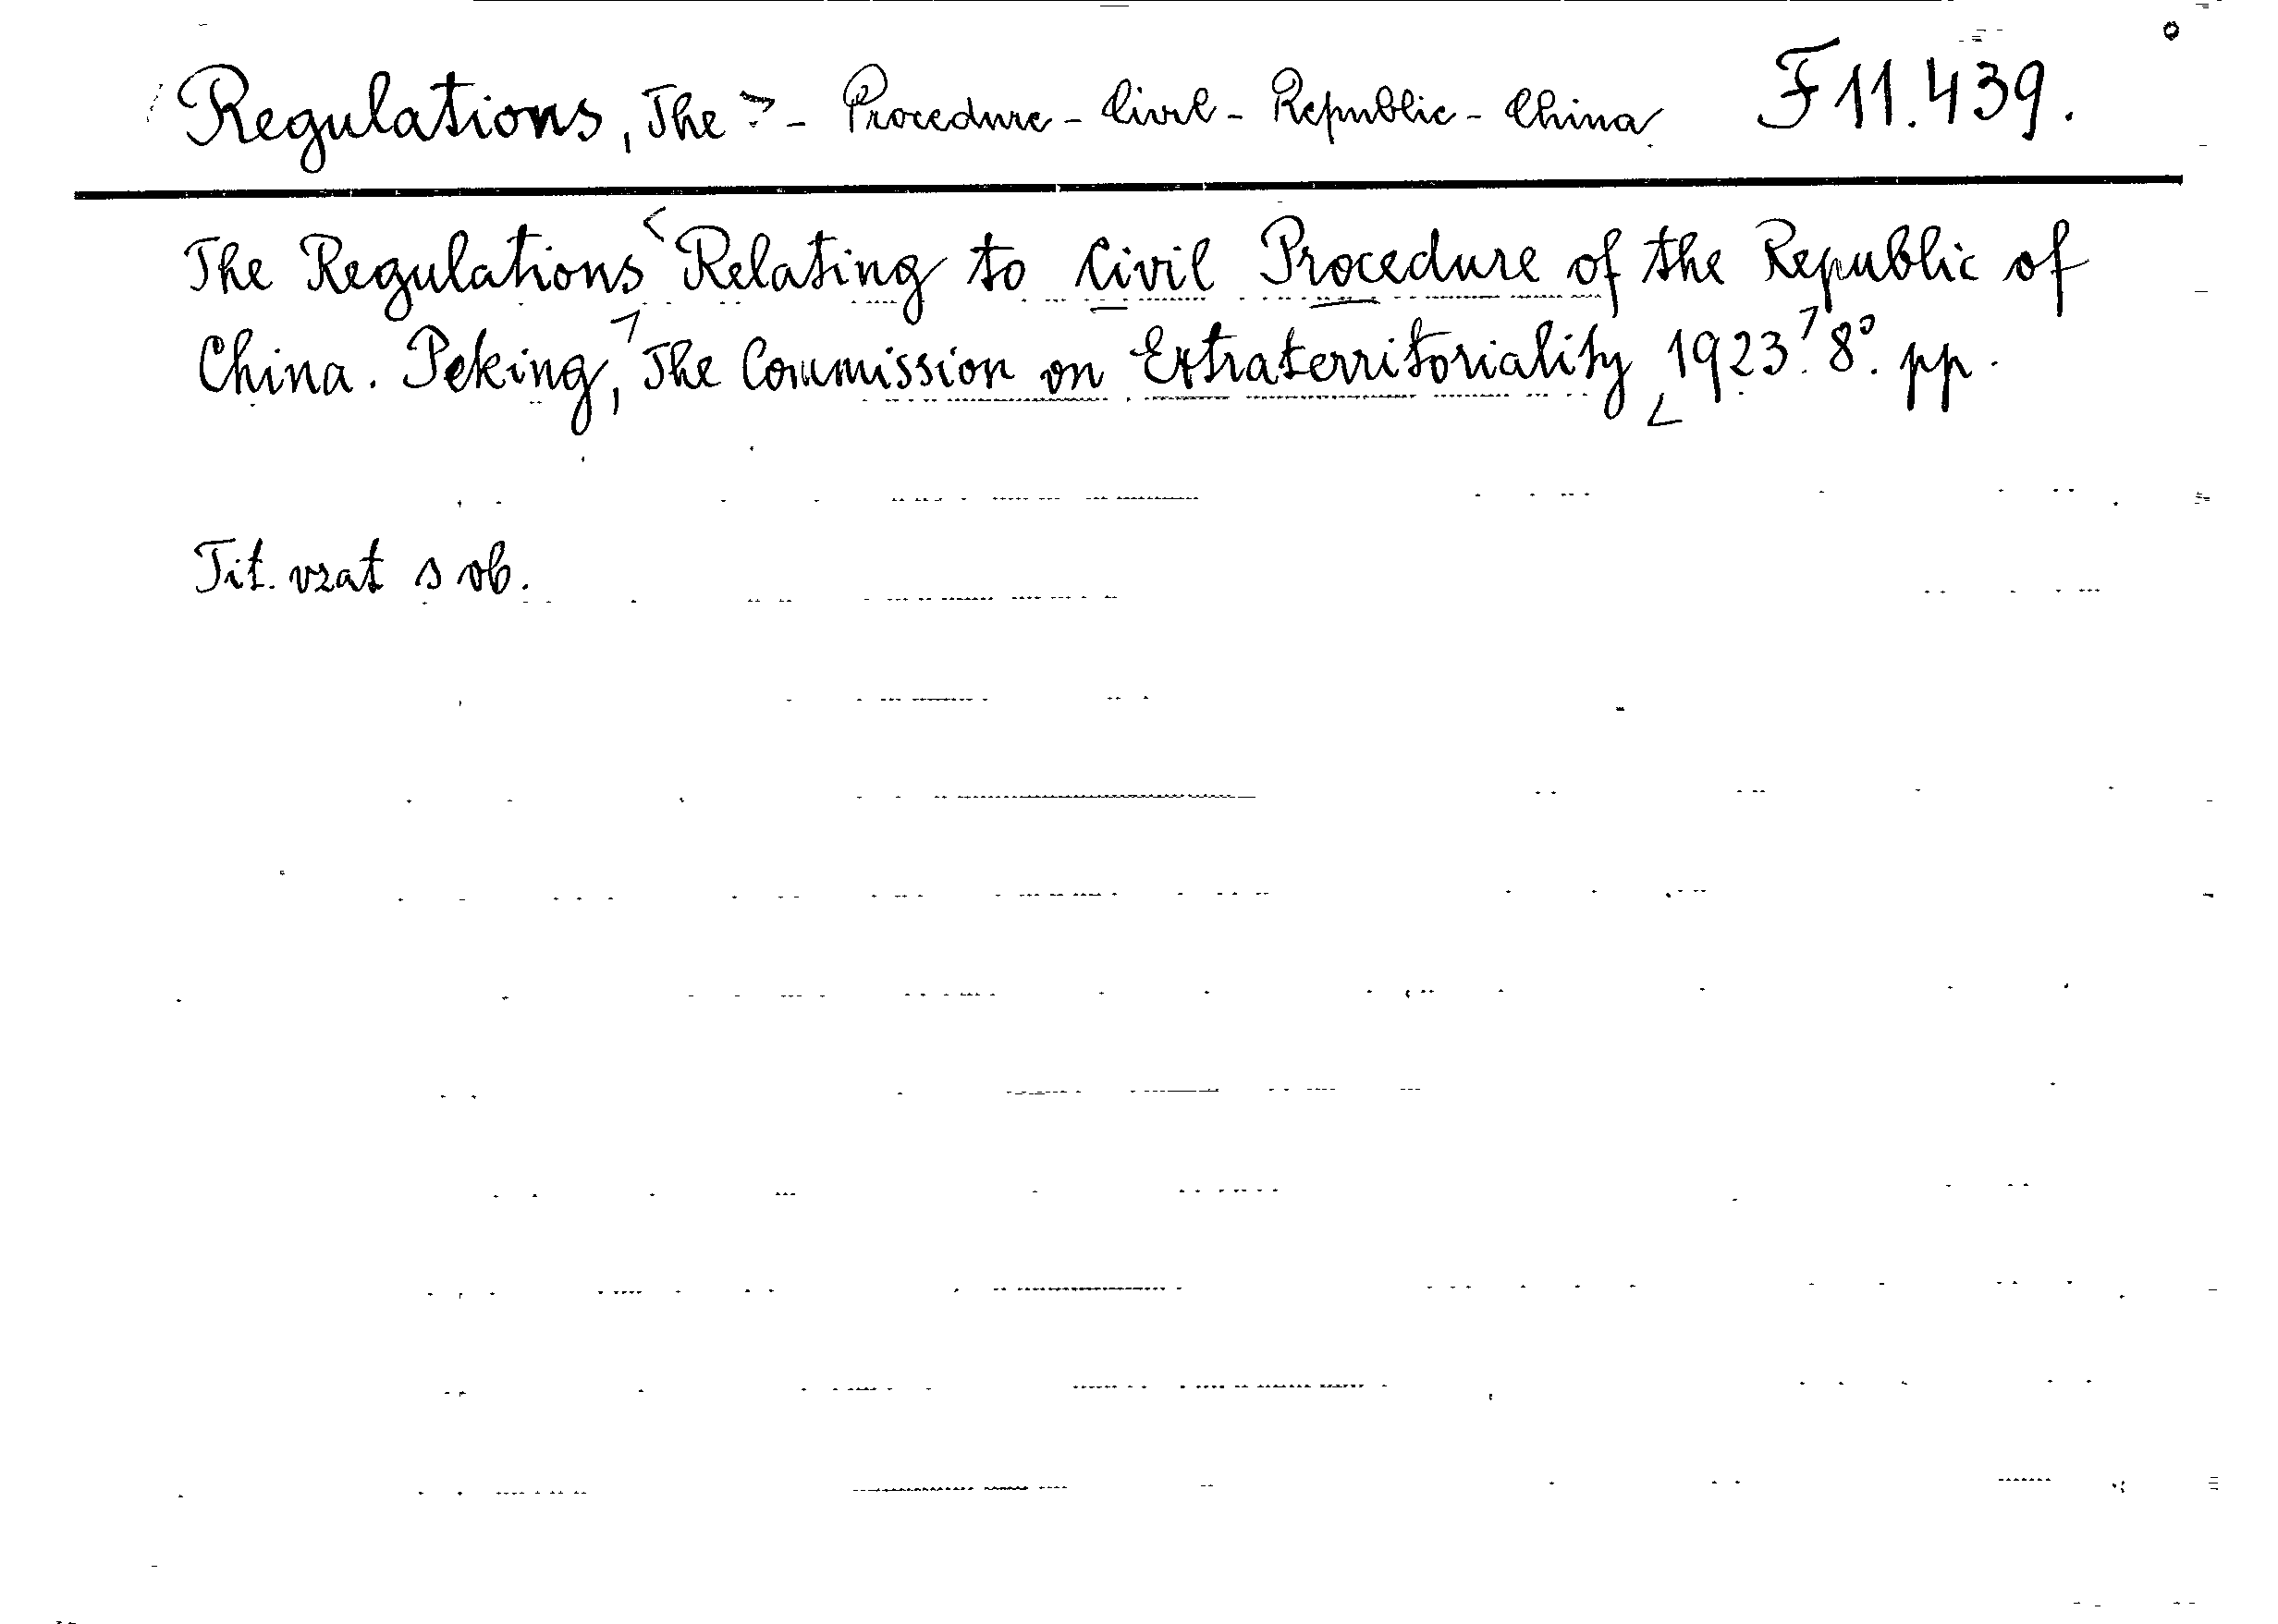 Regulations, The - Procedure - Civil - Republic - China F 11.439.
The Regulations Relating to Civil Procedure of the Republic of
China. Peking, The Commission on Extraterritoriality, 1923. 8°. pp.
Tit. vzat s ob.